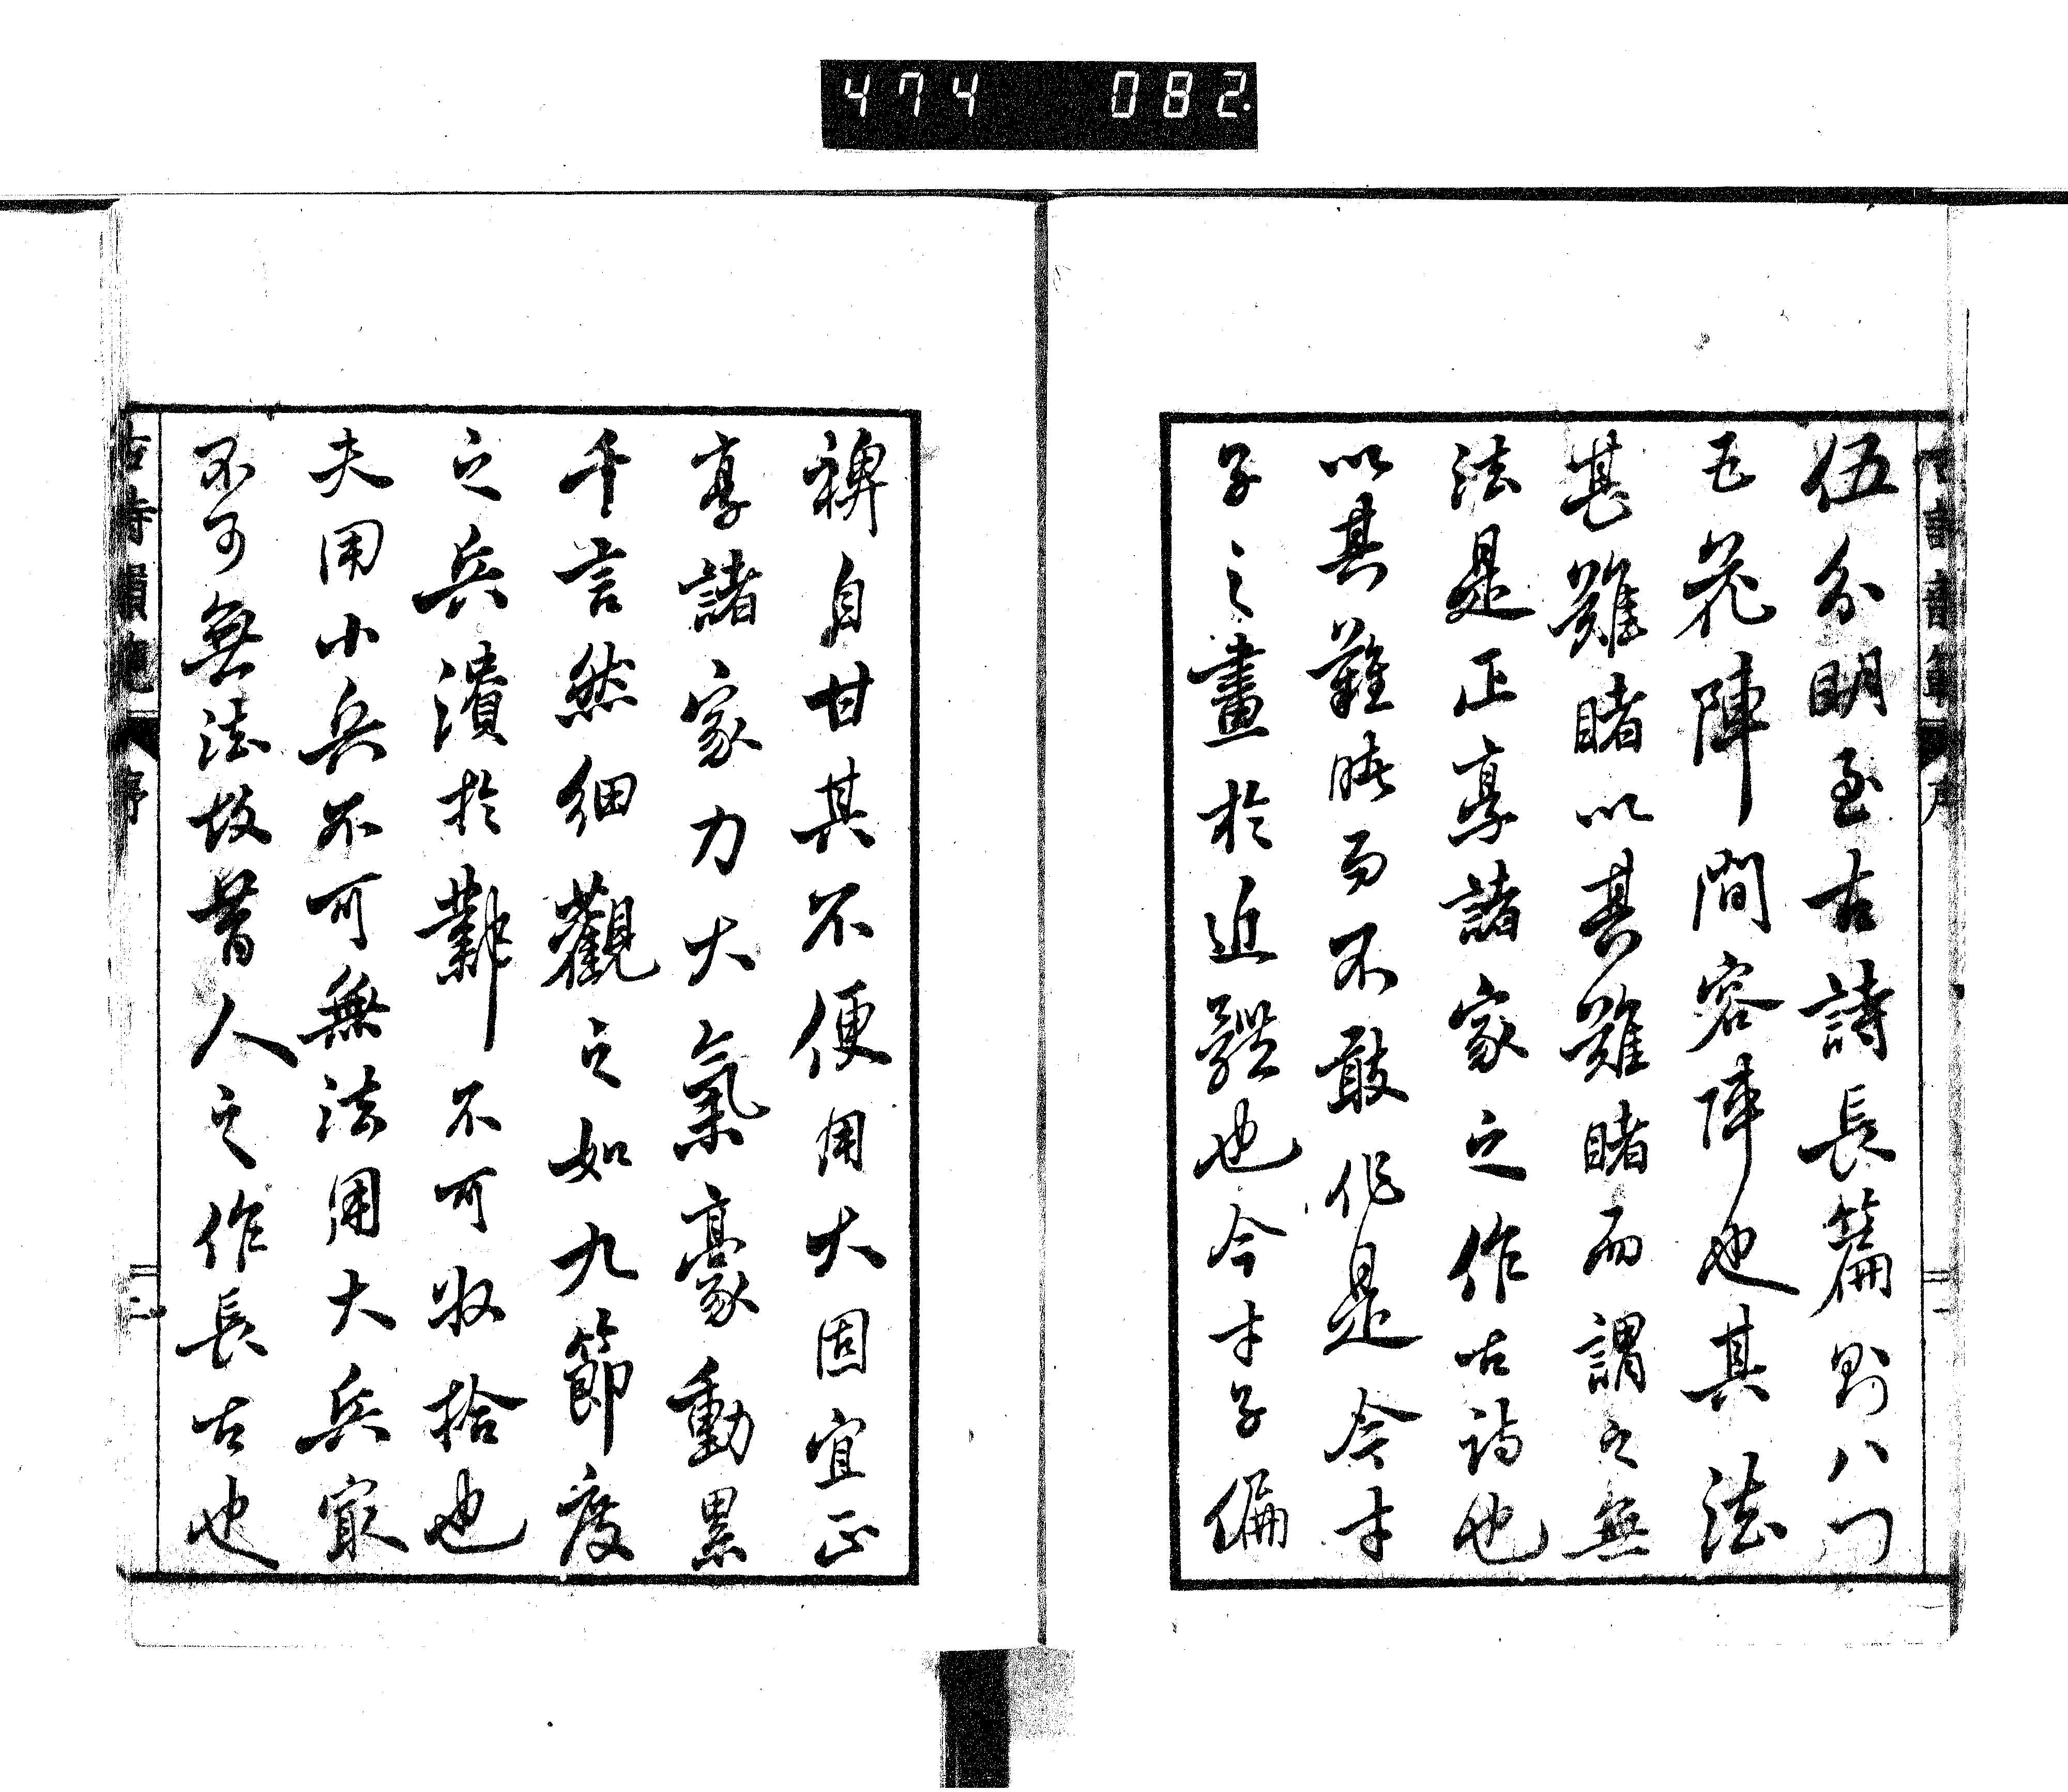 474 082
伍分明至古詩長篇則八門
五花陣間容陣也其法
甚難睹以其難睹而謂之無
法是正享諸家之作古詩也
以其難睹而不敢作是今才
子之畫於近體也今才子偏
裨自甘其不便用大固宜正
享諸家力大氣豪動累
千言然細觀之如九節度
之兵潰於鄴不可收拾也
夫用小兵不可無法用大兵最
不可無法故昔人之作長古也
古詩韻範 序 二